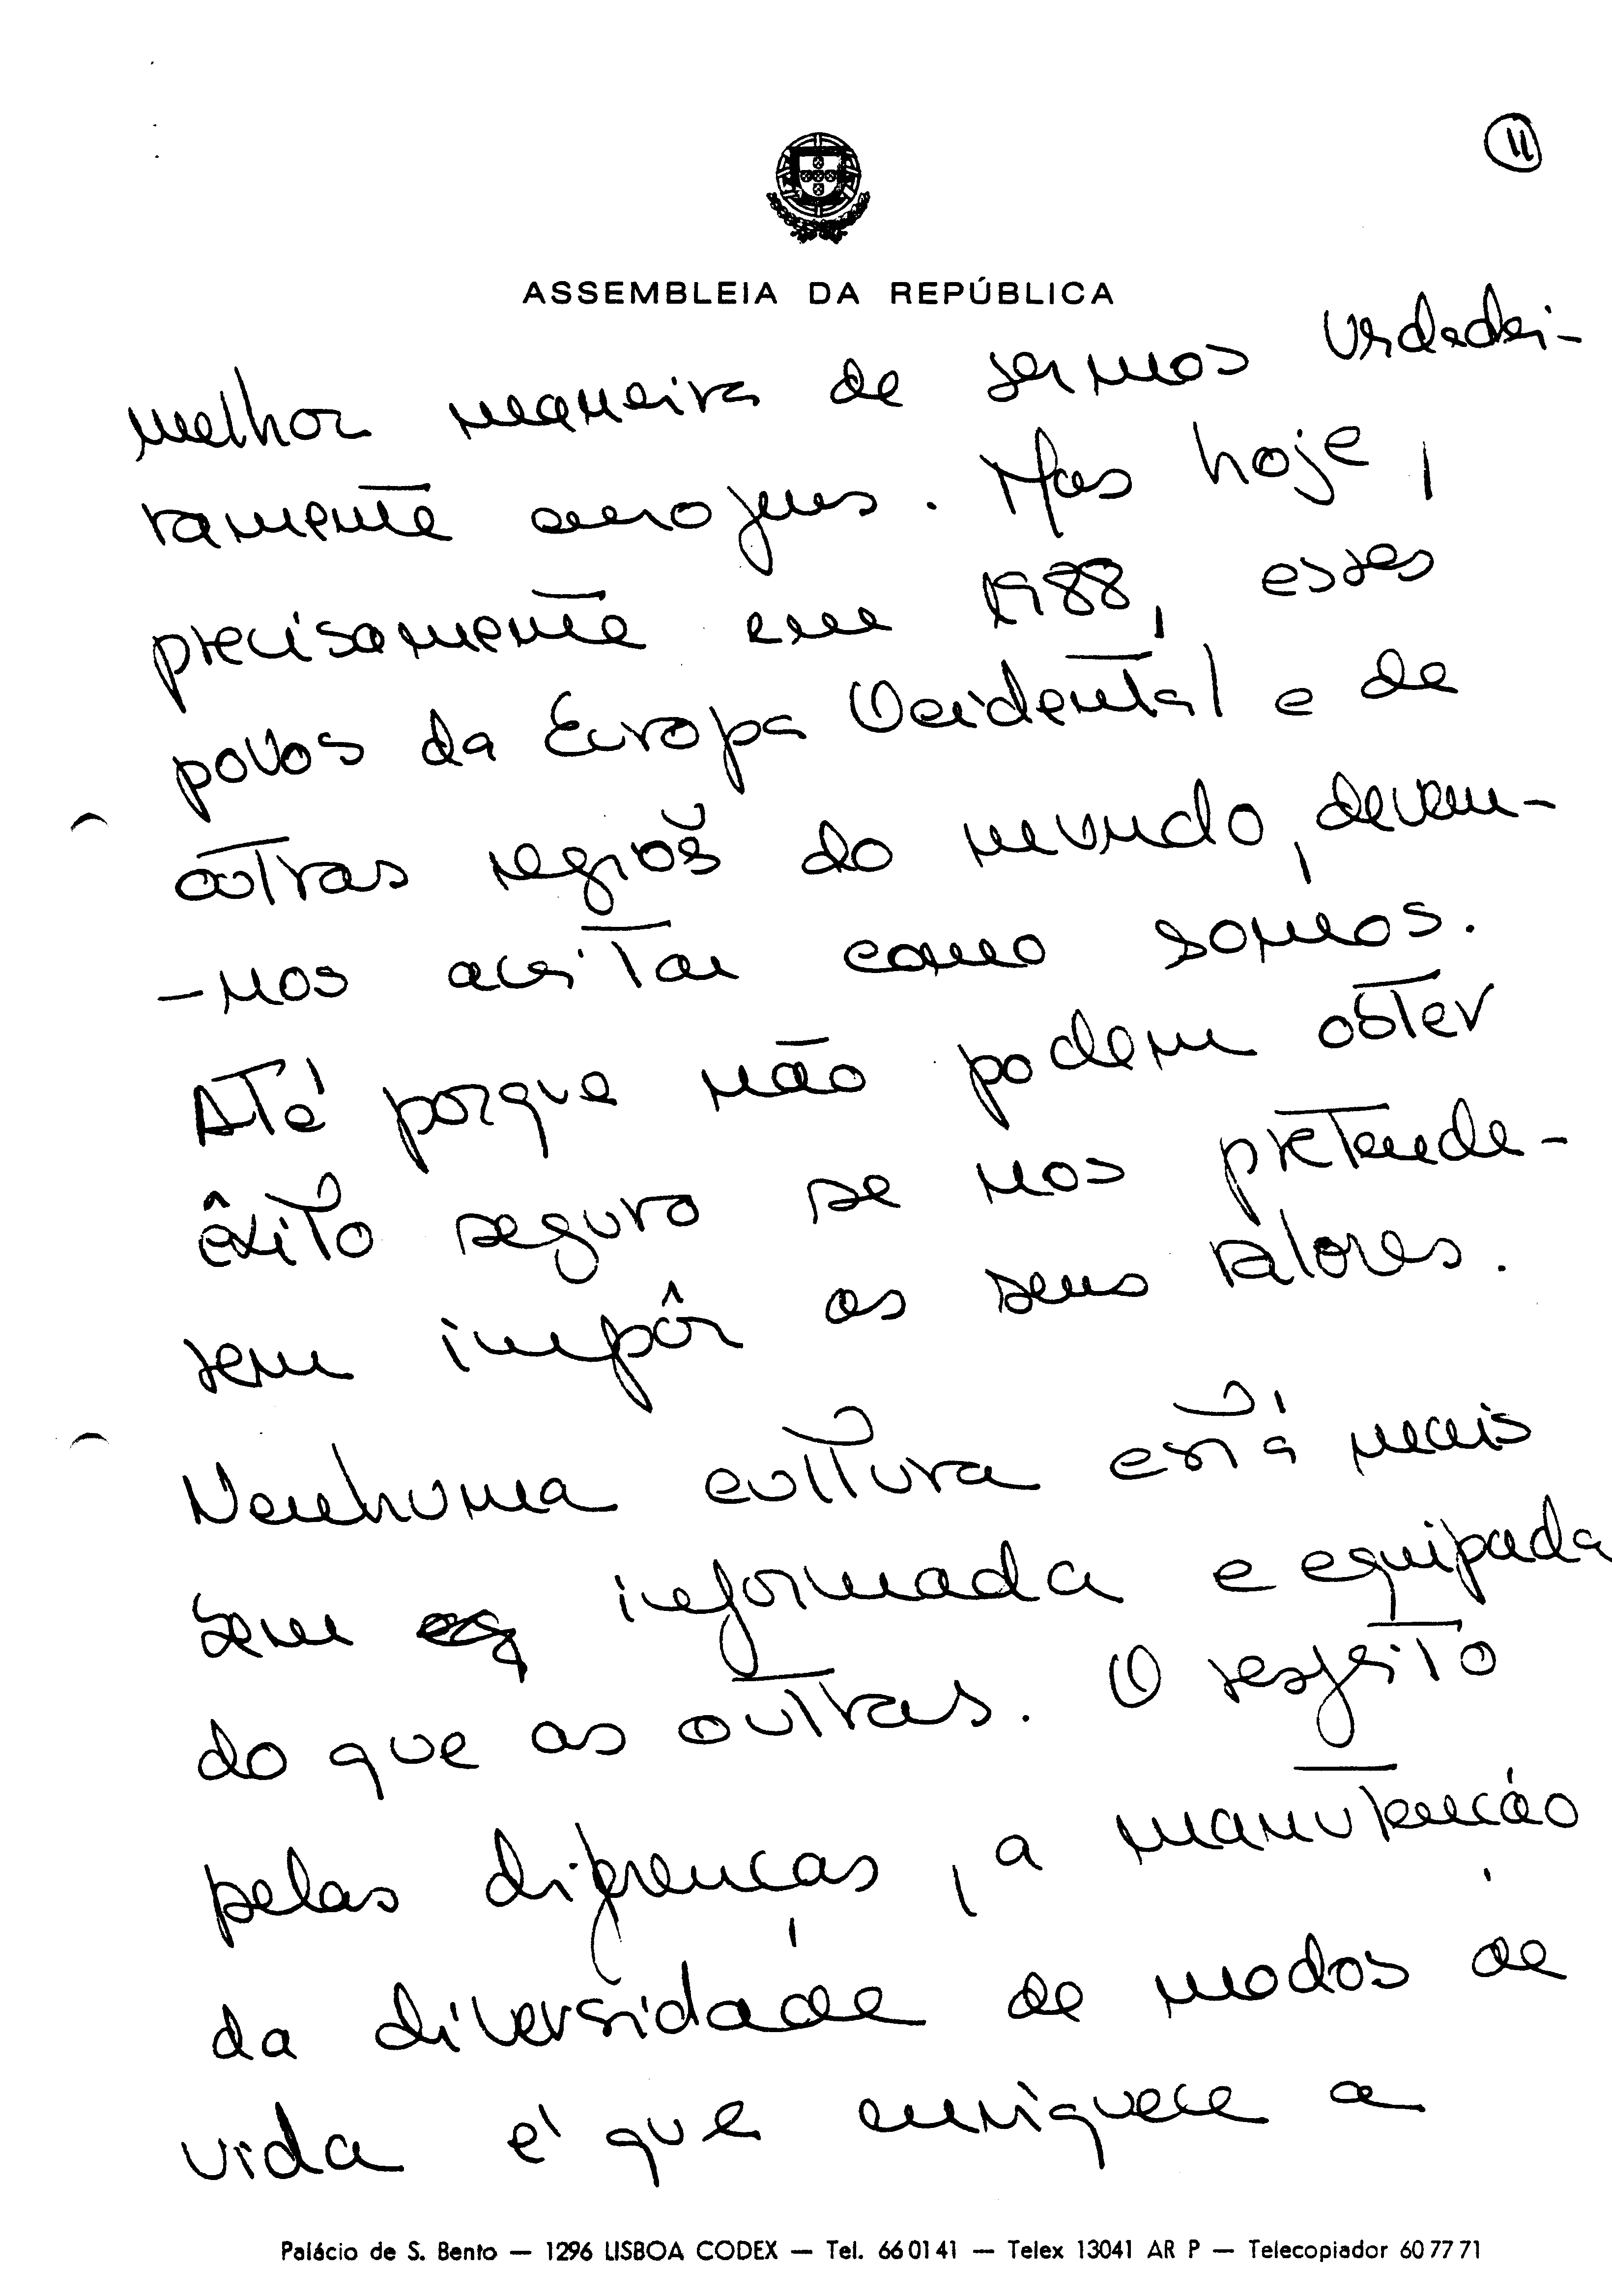 11
ASSEMBLEIA DA REPÚBLICA
melhor maneira de sermos verdadei-
ramente europeus. Mas hoje,
precisamente em 1988, esses
povos da Europa Ocidental e de
outras regiões do mundo, devem-
-nos aceitar como somos.
Até porque não podem obter
êxito seguro se nos pretende-
rem impôr os seus valores.
Nenhuma cultura está mais
bem informada e equipada
do que as outras. O respeito
pelas diferenças, a manutenção
da diversidade de modos de
vida é que enriquece a
Palácio de S. Bento — 1296 LISBOA CODEX — Tel. 66 01 41 — Telex 13041 AR P — Telecopiador 60 77 71